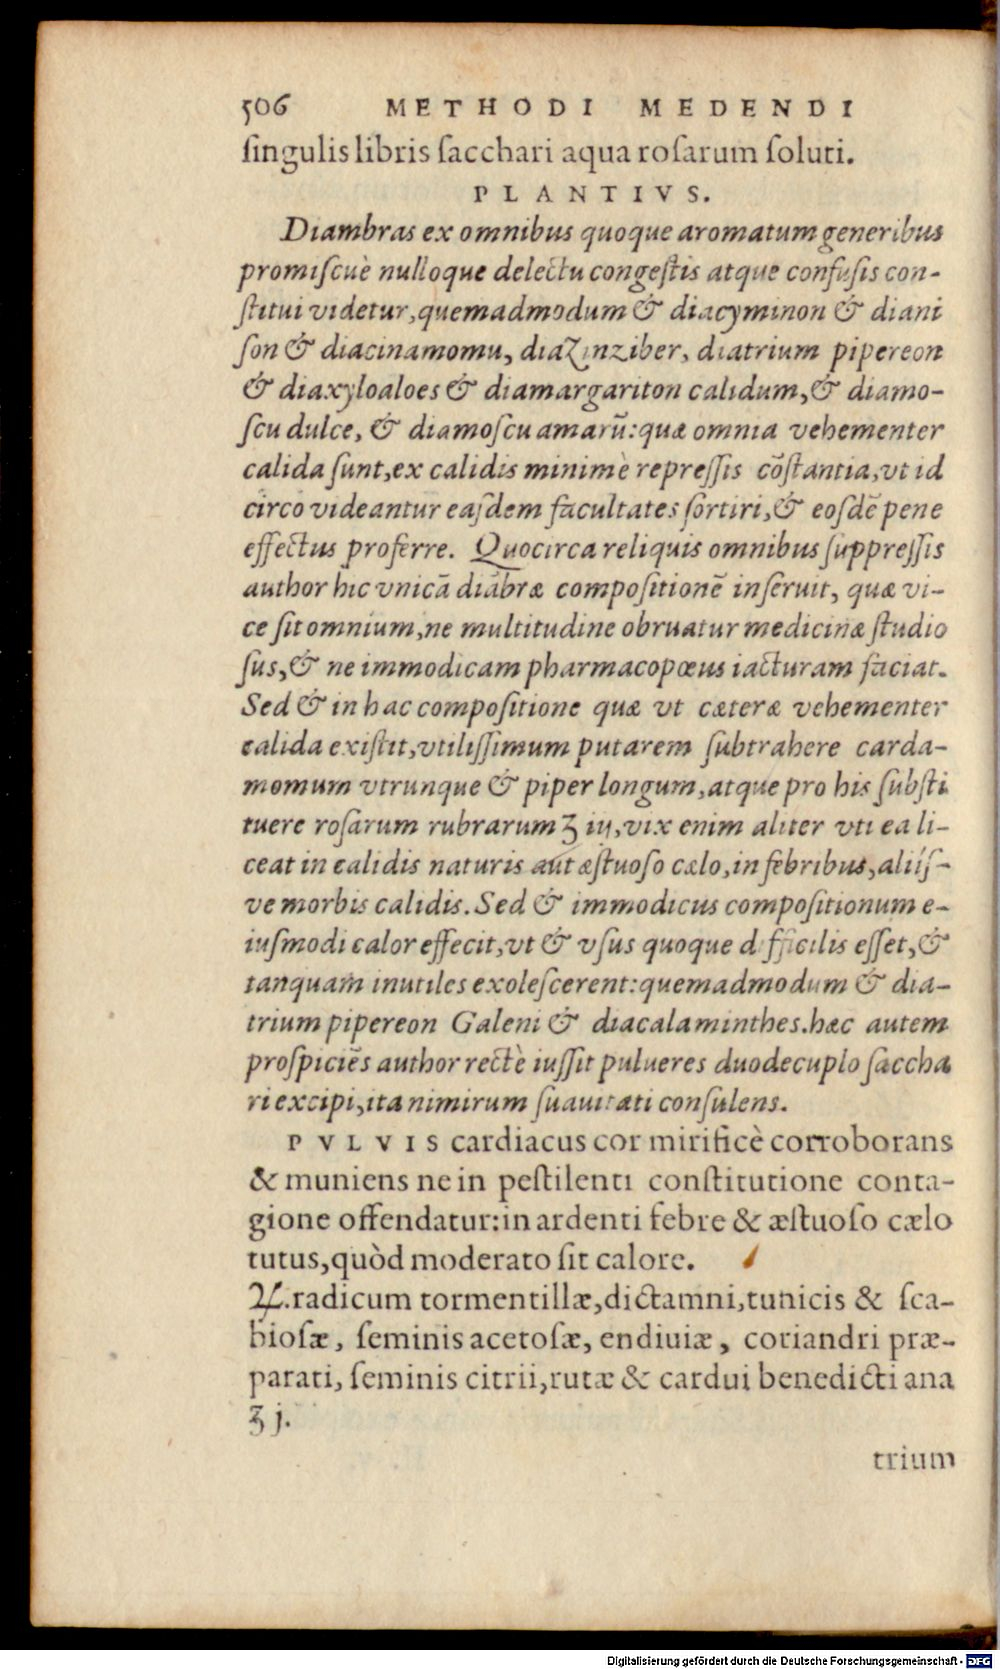 506 METHODI MEDENDI
ſingulis libris ſacchari aqua roſarum ſoluti.
PLANTIVS.
Diambras ex omnibus quoque aromatum generibus
promiſcuè nulloque delectu congeſtis atque confuſis con-
ſtitui videtur, quemadmodum & diacyminon & diani
ſon & diacinamomu, diazinziber, diatrium pipereon
& diaxyloaloes & diamargariton calidum, & diamo-
ſcu dulce, & diamoſcu amarũ: quæ omnia vehementer
calida ſunt, ex calidis minimè repreſſis cõſtantia, vt id
circo videantur eaſdem facultates ſortiri, & eoſdẽ pene
effectus proferre. Quocirca reliquis omnibus ſuppreſſis
author hic vnicã diãbræ compoſitionẽ inſeruit, quæ vi-
ce ſit omnium, ne multitudine obruatur medicinæ ſtudio
ſus, & ne immodicam pharmacopœus iacturam faciat.
Sed & in hac compoſitione quæ vt cæteræ vehementer
calida exiſtit, vtiliſſimum putarem ſubtrahere carda-
momum vtrunque & piper longum, atque pro his ſubſti
tuere roſarum rubrarum ʒ iij, vix enim aliter vti ea li-
ceat in calidis naturis aut æſtuoſo cælo, in febribus, aliíſ-
ve morbis calidis. Sed & immodicus compoſitionum e-
iuſmodi calor effecit, vt & vſus quoque difficilis eſſet, &
tanquam inutiles exoleſcerent: quemadmodum & dia-
trium pipereon Galeni & diacalaminthes. hæc autem
proſpiciẽs author rectè iuſſit pulueres duodecuplo ſaccha
ri excipi, ita nimirum ſuauitati conſulens.
PVLVIS cardiacus cor mirificè corroborans
& muniens ne in peſtilenti conſtitutione conta-
gione offendatur: in ardenti febre & æſtuoſo cælo
tutus, quòd moderato ſit calore.
℞. radicum tormentillæ, dictamni, tunicis & ſca-
bioſæ, ſeminis acetoſæ, endiuiæ, coriandri præ-
parati, ſeminis citrii, rutæ & cardui benedicti ana
ʒ j.
trium
Digitalisierung gefördert durch die Deutsche Forschungsgemeinschaft - DFG